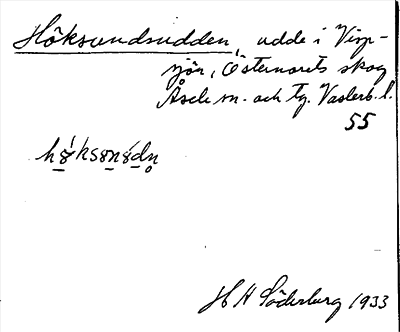 Höksundsudden, udde i Visp-
sjön, Östernorets skog
Åsele sn. och tg. Västerb. l.
55
H H Söderburg 1933